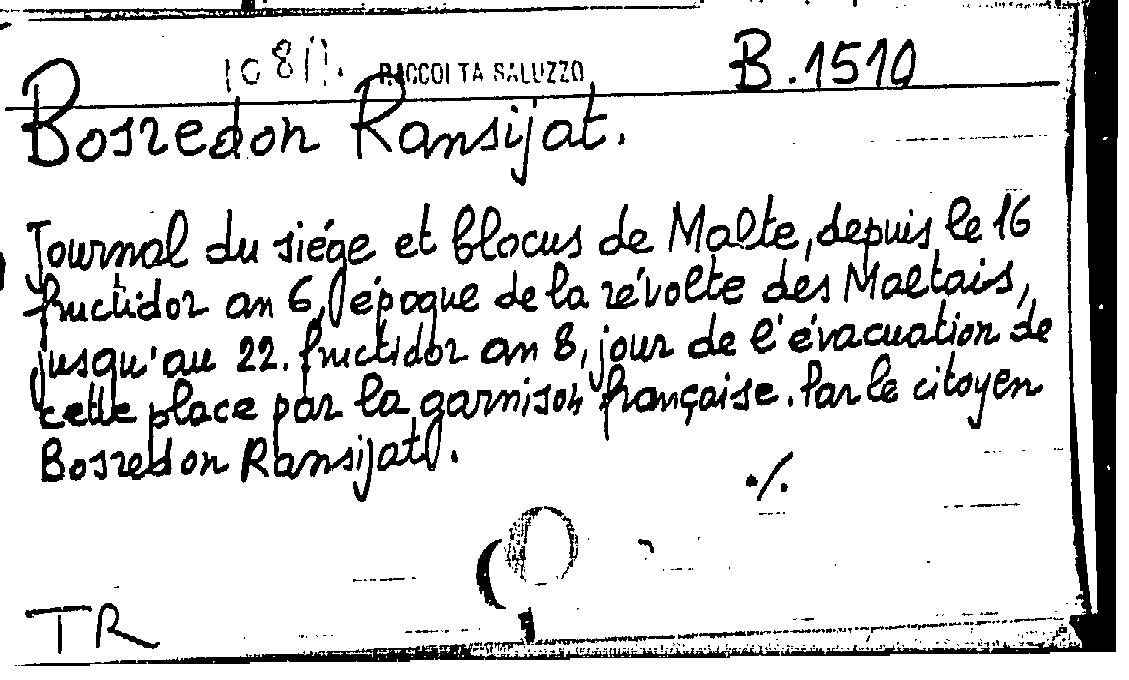 RACCOLTA SALUZZO B.1510
Bosredon Ransijat.
Journal du siége et blocus de Malte, depuis le 16
fructidor an 6, époque de la révolte des Maltais,
jusqu'au 22. fructidor an 8, jour de l'évacuation de
cette place par la garnison française. Par le citoyen
Bosredon Ransijat.
./.
TR